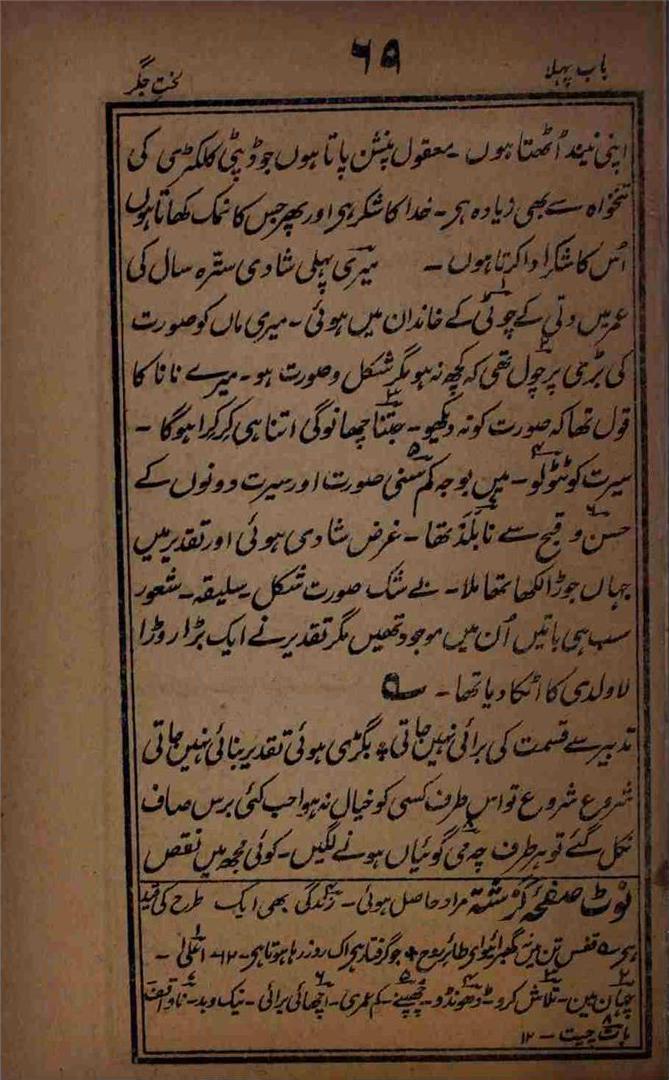 باب پہلا
۶۵
لخت جگر
اپنی نیند اُٹھتا ہوں ۔ معقول پنشن پاتا ہوں جو ڈپٹی کلکٹری کی
تنخواہ سے بھی زیادہ ہی ۔ خدا کا شکر ہی اور پھر جس کا نمک کھاتا ہوں
اُس کا شکر ادا کرتا ہوں ۔ میری پہلی شادی سترہ سال کی
عمر میں دتی کے چوٹی کے خاندان میں ہوئی ۔ میری ماں کو صورت
کی بڑی پرچول تھی کہ کچھ نہ ہو مگر شکل و صورت ہو ۔ میرے نانا کا
قول تھا کہ صورت کو نہ دیکھو ۔ جتنا چھانوگی اتنا ہی کرکرا ہوگا ۔
سیرت کو ٹٹولو ۔ میں بوجہ کم سنی صورت اور سیرت دونوں کے
حسن و قبح سے نابلد تھا ۔ غرض شادی ہوئی اور تقدیر میں
جہاں جوڑا لکھا تھا ملا ۔ بے شک صورت شکل ۔ سلیقہ ۔ شعور
سب ہی باتیں اُن میں موجود تھیں مگر تقدیر نے ایک بڑا روڑا
لاولدی کا اٹکا دیا تھا ۔ ؎
تدبیر سے قسمت کی برائی نہیں جاتی * بگڑی ہوئی تقدیر بنائی نہیں جاتی
شروع شروع تو اس طرف کسی کو خیال نہ ہوا جب کئی برس صاف
نکل گئے تو ہر طرف چہ می گوئیاں ہونے لگیں ۔ کوئی مجھ میں نقص
نوٹ صفحۂ گزشتہ مراد حاصل ہوئی ۔ زندگی بھی ایک طرح کی قید
ہی ؎ قفس تن میں نہ گھبرائیو ای طائر روح * جو گرفتار ہی اک روز رہا ہوتا ہی ۔ ۱۲ ۱؎ اعلیٰ ۔
۲؎ چھان بین ۔ ۳؎ تلاش کرو ۔ ڈھونڈو ۔ ۴؎ چھپنے ۔ ۵؎ کم عمری ۔ ۶؎ اچھائی برائی ۔ نیک و بد ۔ ۷؎ ناواقف
۸؎ بات چیت ۔ ۱۲